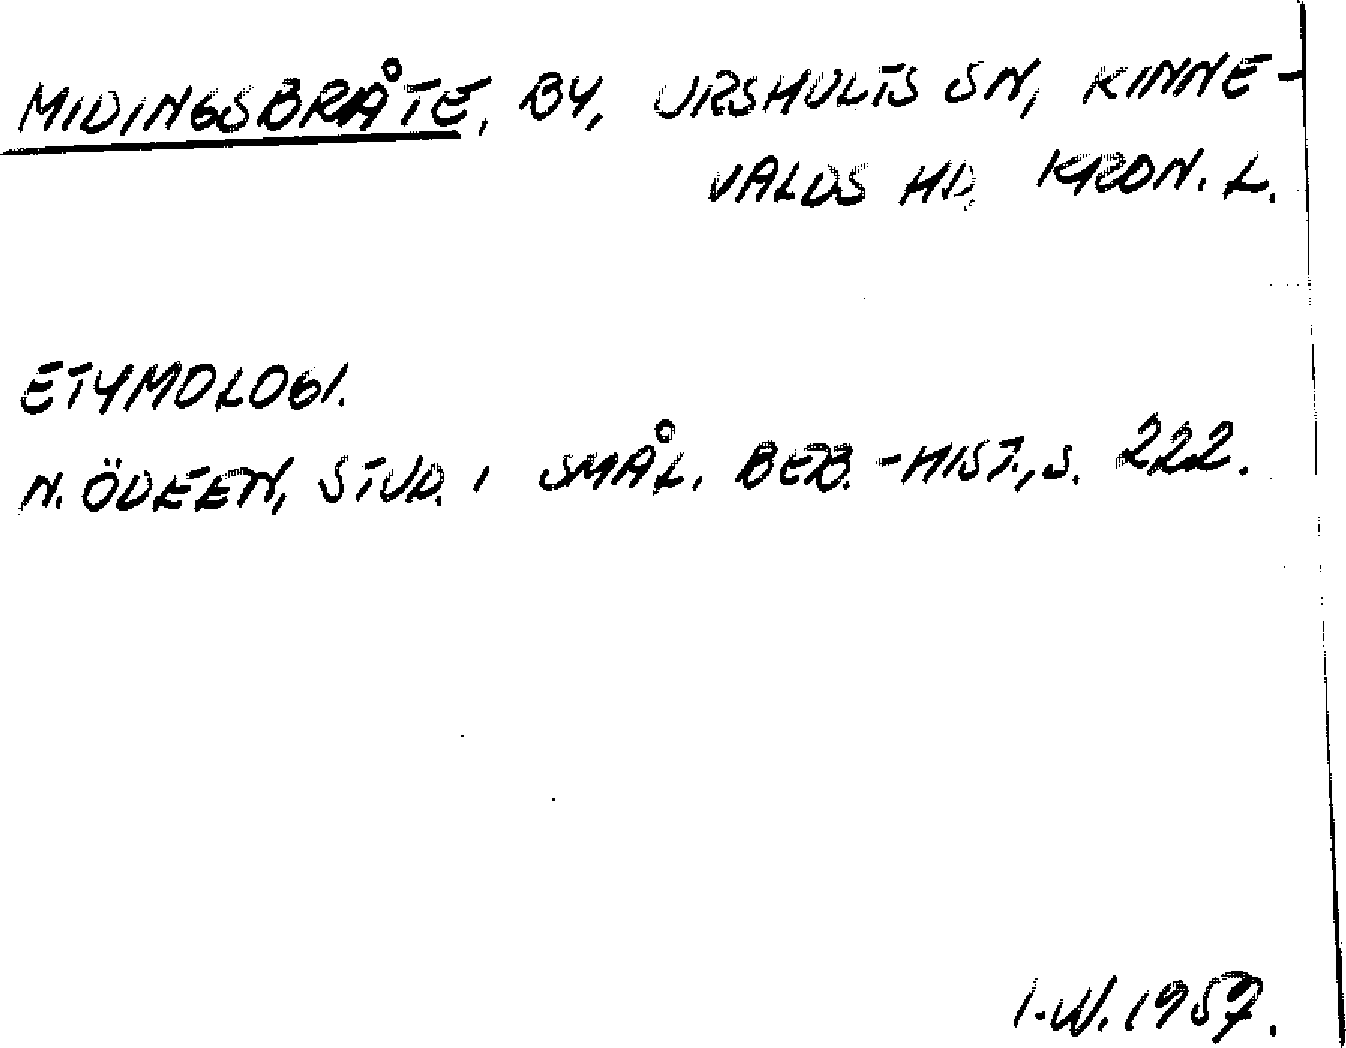 MIDINGSBRÅTE, BY, URSHULTS SN, KINNE-
VALDS HD, KRON. L.
ETYMOLOGI.
N. ÖDEEN, STUD. I SMÅL. BEB.-HIST., S. 222.
I.W. 1957.